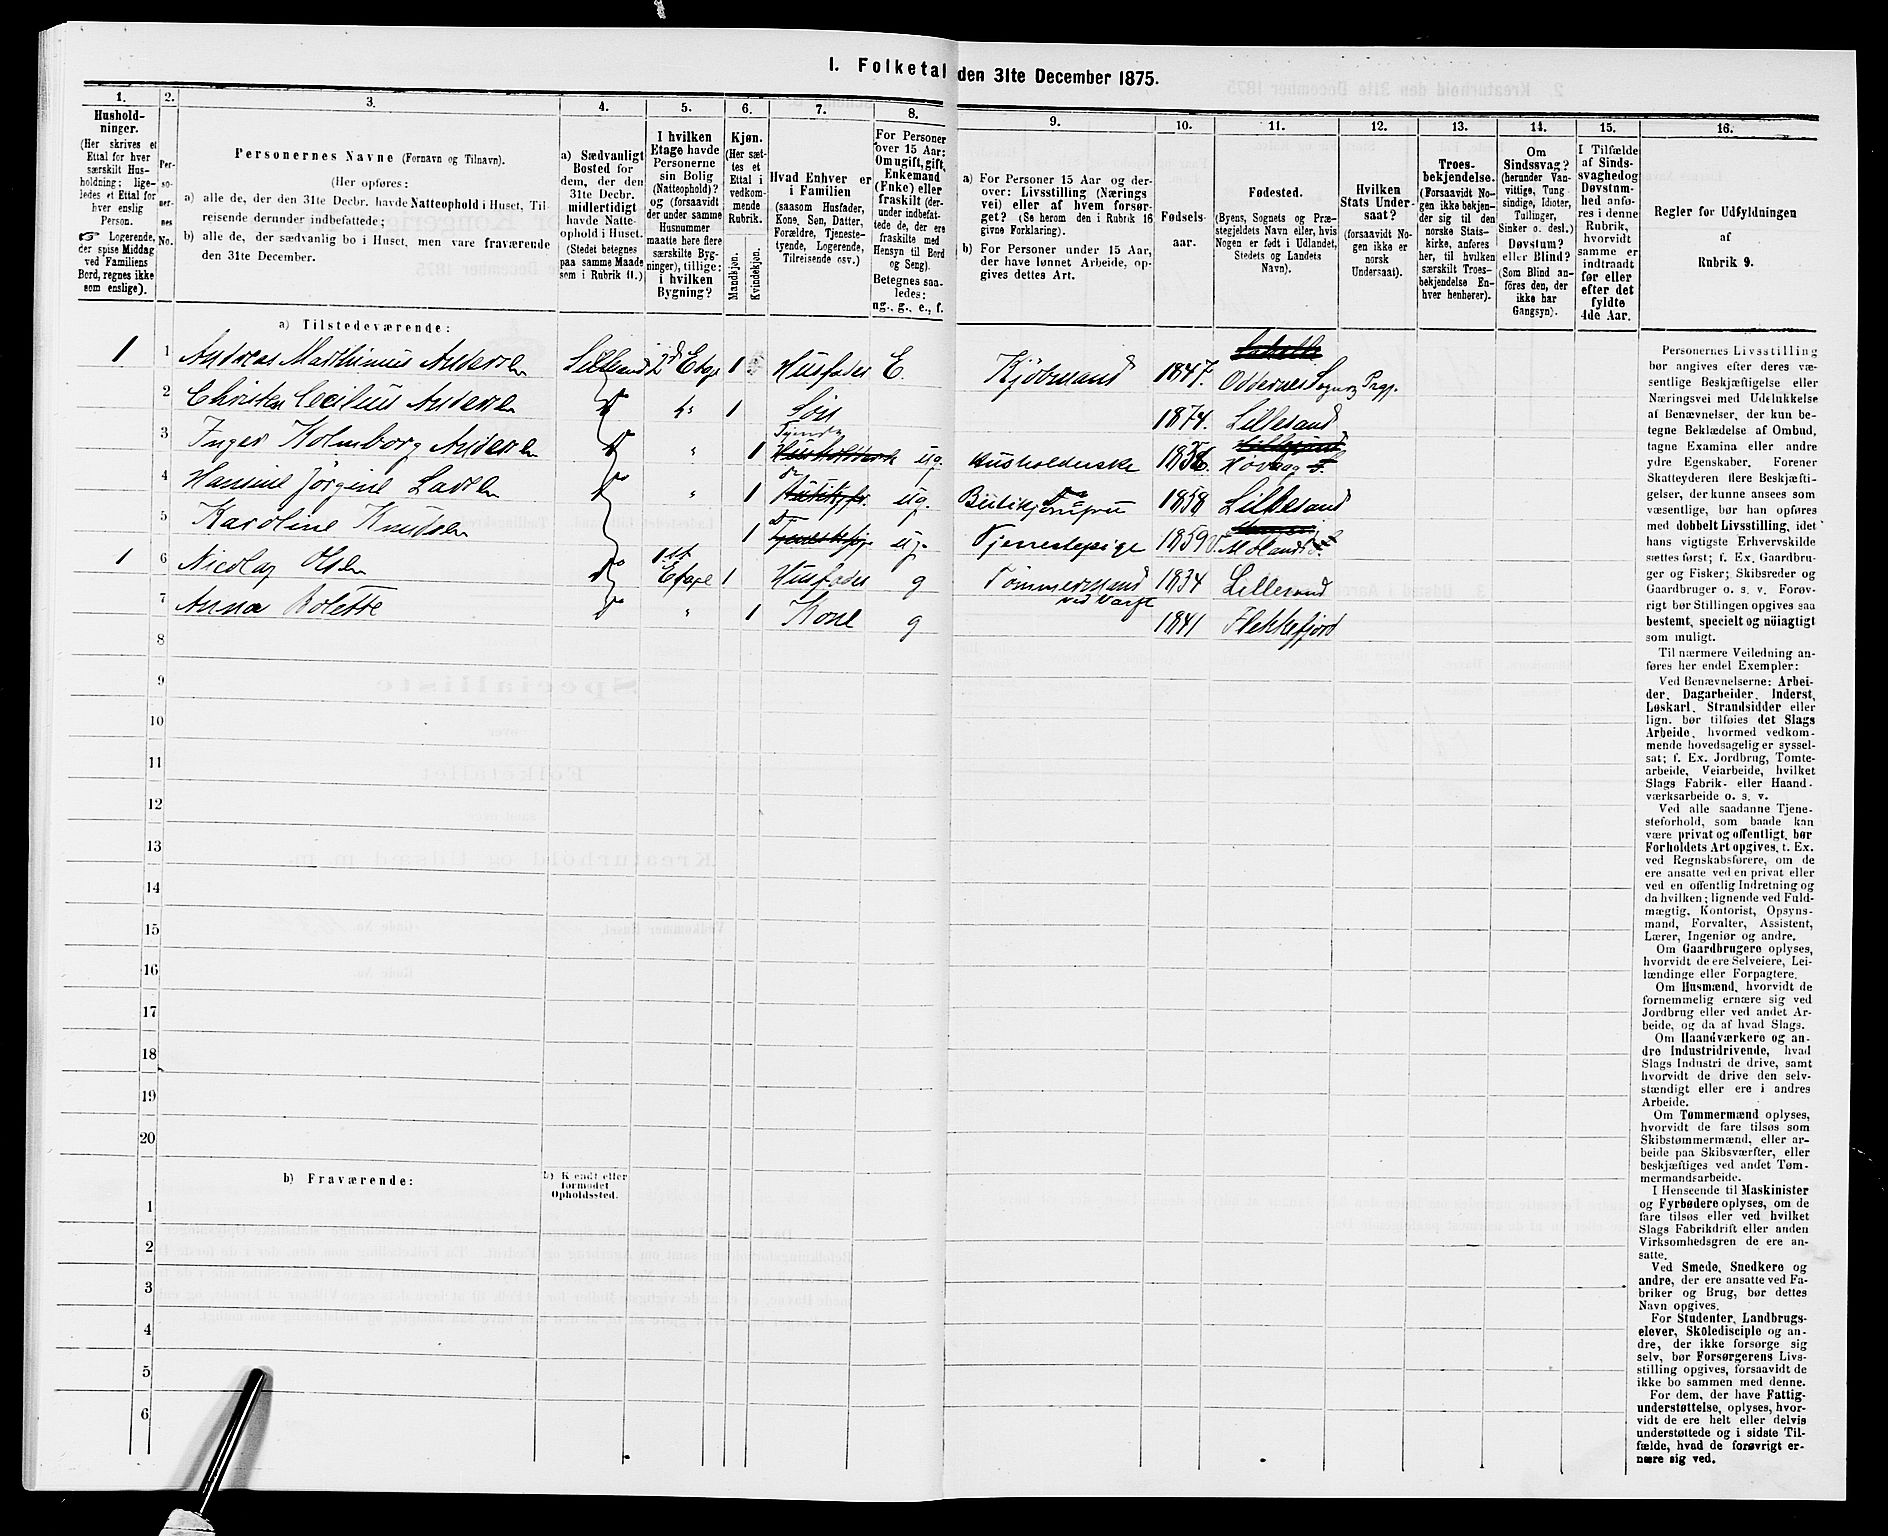 I. Folketal den 31te December 1875.
1.
Hushold-
ninger.
(Her skrives et
Ettal for hver
særskilt Hus-
holdning; lige-
ledes et Ettal for
hver enslig
Person.
☞ Logerende,
der spise Middag
ved Familiens
Bord, regnes ikke
som enslige).
2.
Per-
so-
ner-
nes
No.
3.
Personernes Navne (Fornavn og Tilnavn).
(Her opføres:
a) alle de, der den 31te Decbr. havde Natteophold i Huset, Til-
reisende derunder indbefattede;
b) alle de, der sædvanlig bo i Huset, men vare fraværende
den 31te December.
4.
a) Sædvanligt
Bosted for
dem, der den
31te Decbr.
midlertidigt
havde Natte-
ophold i Huset.
(Stedet betegnes
paa samme Maade
som i Rubrik 11.)
5.
I hvilken
Etage havde
Personerne
sin Bolig
(Natteophold)?
og (forsaavidt
der under samme
Husnummer
maatte høre flere
særskilte Byg-
ninger), tillige:
i hvilken
Bygning?
6.
Kjøn.
(Her sæt-
tes et
Ettal i
vedkom-
mende
Rubrik.
Mandkjøn.
Kvindekjøn.
7.
Hvad Enhver er
i Familien
(saasom Husfader,
Kone, Søn, Datter,
Forældre, Tjeneste-
tyende, Logerende,
Tilreisende osv.)
8.
For Personer
over 15 Aar:
Om ugift, gift,
Enkemand
(Enke) eller
fraskilt (der-
under indbefat-
tede de, der ere
fraskilte med
Hensyn til Bord
og Seng).
Betegnes saa-
ledes:
ug., g., e., f.
9.
a) For Personer 15 Aar og der-
over: Livsstilling (Nærings
vei) eller af hvem forsør-
get? (Se herom den i Rubrik 16
givne Forklaring).
b) For Personer under 15 Aar,
der have lønnet Arbeide, op-
gives dettes Art.
10.
Fødsels-
aar.
11.
Fødested.
(Byens, Sognets og Præ-
stegjeldets Navn eller, hvis
Nogen er født i Udlandet,
Stedets og Landets
Navn).
12.
Hvilken
Stats Under-
saat?
(forsaavidt No-
gen ikke er
norsk
Undersaat).
13.
Troes-
bekjendelse.
(Forsaavidt No-
gen ikke bekjen-
der sig til den
norske Stats-
kirke, anføres
her, til hvilken
særskilt Troes-
bekjendelse En-
hver henhører).
14.
Om
Sindssvag?
(herunder Van-
vittige, Tung-
sindige, Idioter,
Tullinger,
Sinker o. desl.)
Døvstum?
eller Blind?
(Som Blind an-
føres den, der
ikke har
Gangsyn).
15.
I Tilfælde
af Sinds-
svaghed og
Døvstum-
hed anfø-
res i denne
Rubrik,
hvorvidt
samme er
indtraadt
før eller
efter det
fyldte
4de Aar.
16.
Regler for Udfyldningen
af
Rubrik 9.
a) Tilstedeværende:
1 1 Andreas Marthinius Andersen Lillesand 2d Etage 1 Husfader E. Kjøbmand 1847. Oddernes Sogn og Prgj.
2 Christen Cecilius Andersen Do " 1 Søn 1874. Lillesand
3 Inger Kolmborg Andersen Do " 1 Tyende ug. Husholderske Høvaag
4 Hansine Jørgine Larsen Do " 1 Do ug. Butikjomfru 1858 Lillesand
5 Karoline Knudsen 1 Do ug. Tjenestepige 1859
1 6 Nicolay Olsen Do 1st Etage 1 Husfader g Tømmermand ved Værft 1834 Lillesand
7 Anna Bolette Do " 1 Kone g 1841 Flekkefjord
8
9
10
11
12
13
14
15
16
17
18
19
20
b) Fraværende:
b) Kjendt eller
formodet
Opholdssted.
1
2
3
4
5
6
Personernes Livsstilling
bør angives efter deres væ-
sentlige Beskjæftigelse eller
Næringsvei med Udelukkelse
af Benævnelser, der kun be-
tegne Beklædelse af Ombud,
tagne Examina eller andre
ydre Egenskaber. Forener
Skatteyderen flere Beskjæfti-
gelser, der kunne ansees som
væsentlige, bør han opføres
med dobbelt Livsstilling, idet
hans vigtigste Erhvervskilde
sættes først; f. Ex. Gaardbru-
ger og Fisker; Skibsreder og
Gaardbruger o. s. v. Forøv-
rigt bør Stillingen opgives saa
bestemt, specielt og nöiagtigt
som muligt.
Til nærmere Veiledning an-
føres her endel Exempler:
Ved Benævnelserne: Arbei-
der, Dagarbeider, Inderst,
Løskarl, Strandsidder eller
lign. bør tilføies det Slags
Arbeide, hvormed vedkom-
mende hovedsagelig er syssel-
sat; f. Ex. Jordbrug, Tomte-
arbeide, Veiarbeide, hvilket
Slags Fabrik- eller Haand-
værksarbeide o. s. v.
Ved alle saadanne Tjene-
steforhold, som baade kan
være privat og offentligt, bør
Forholdets Art opgives, t. Ex.
ved Regnskabsførere, om de
ere ansatte ved en privat eller
ved en offentlig Indretning og
da hvilken; lignende ved Fuld-
mægtig, Kontorist, Opsyns-
mand, Forvalter, Assistent,
Lærer, Ingeniør og andre.
Om Gaardbrugere oplyses,
hvorvidt de ere Selveiere, Lei-
lændinge eller Forpagtere.
Om Husmænd, hvorvidt de
fornemmelig ernære sig ved
Jordbrug eller ved andet Ar-
beide, og da af hvad Slags.
Om Haandværkere og an-
dre Industridrivende, hvad
Slags Industri de drive, samt
hvorvidt de drive den selv-
stændigt eller ere i andres
Arbeide.
Om Tømmermænd oplyses,
hvorvidt de fare tilsøs som
Skibstømmermænd, eller ar-
beide paa Skibsværfter, eller
beskjæftiges ved andet Tøm-
mermandsarbeide.
I Henseende til Maskinister
og Fyrbødere oplyses, om de
fare tilsøs eller ved hvilket
Slags Fabrikdrift eller anden
Virksomhedsgren de ere an-
satte.
Ved Smede, Snedkere og
andre, der ere ansatte ved Fa-
briker og Brug, bør dettes
Navn opgives.
For Studenter, Landbrugs-
elever, Skoledisciple og an-
dre, der ikke forsørge sig
selv, bør Forsørgerens Livs-
stilling opgives, forsaavidt de
ikke bo sammen med denne.
For dem, der have Fattig-
understøttelse, oplyses, hvor-
vidt de ere helt eller delvis
understøttede og i sidste Til-
fælde, hvad de forøvrigt er-
nære sig ved.